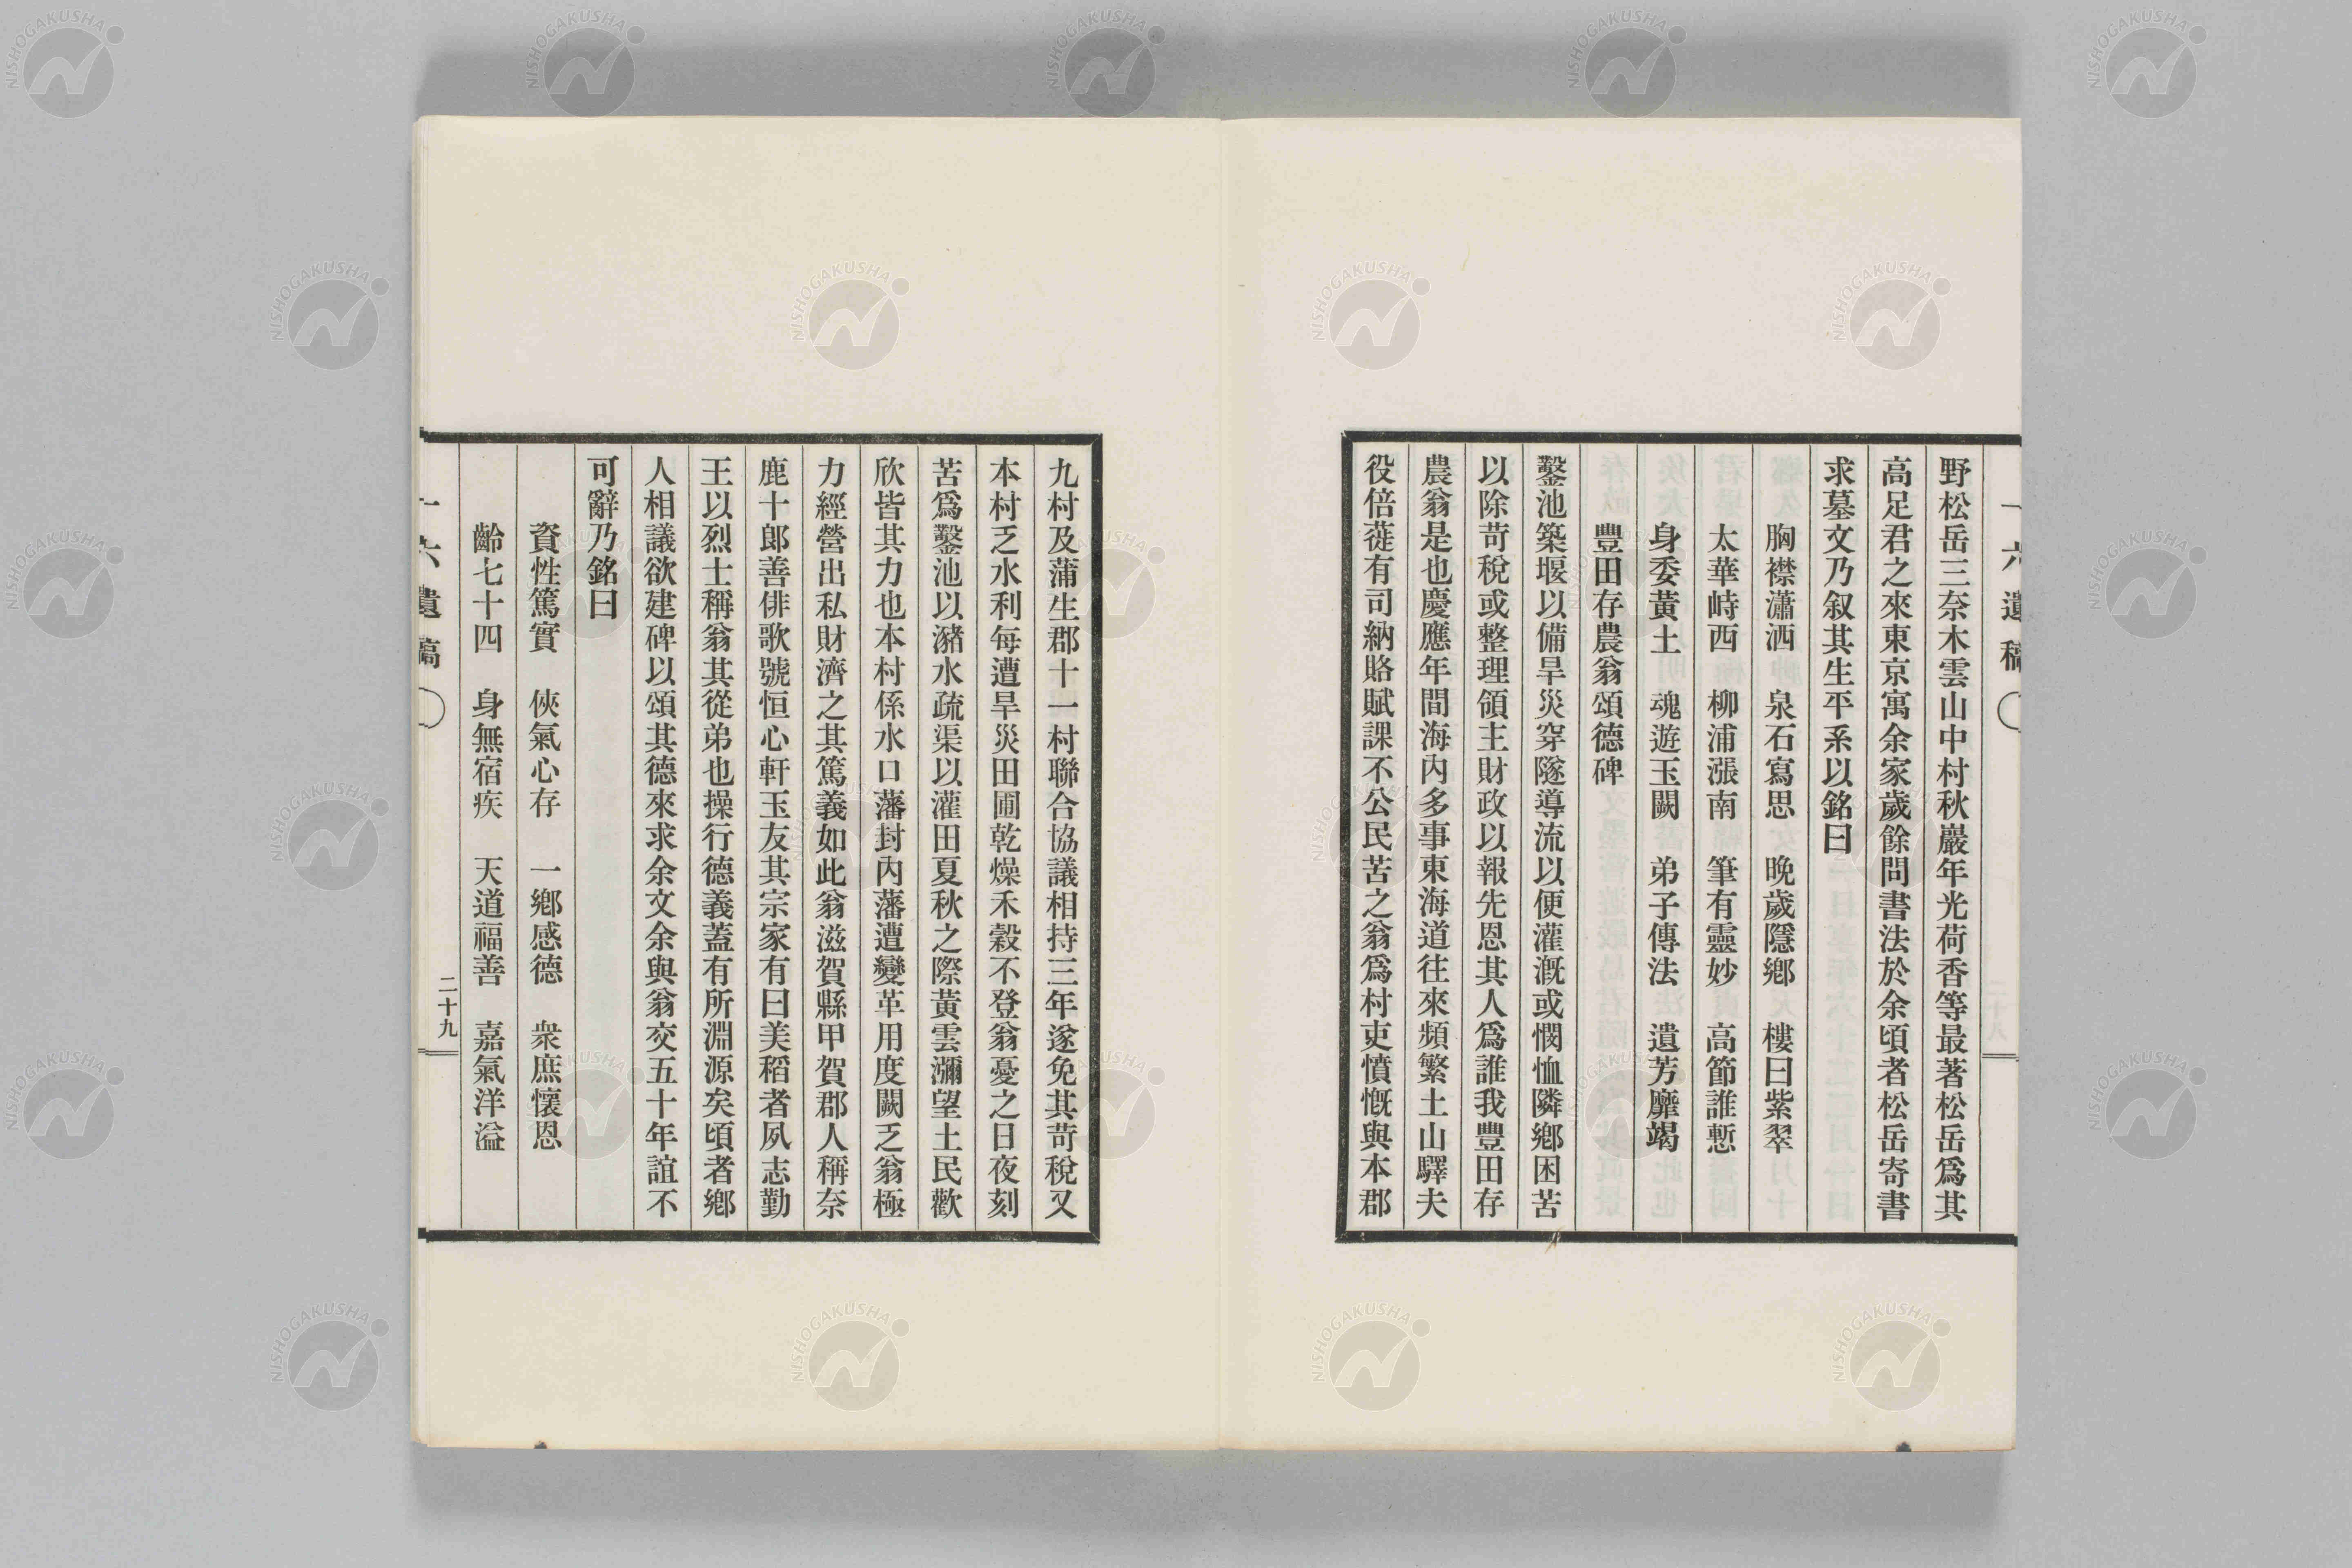 一六遺稿
野松岳三奈木雲山中村秋巖年光荷香等最著松岳爲其
高足君之來東京寓余家歲餘問書法於余頃者松岳寄書
求墓文乃叙其生平系以銘曰
胸襟瀟洒　泉石寫思　晩歲隱鄕　樓曰紫翠
太華峙西　柳浦漲南　筆有靈妙　高節誰慙
身委黃土　魂遊玉闕　弟子傳法　遺芳靡竭
豐田存農翁頌德碑
鑿池築堰以備旱災穿隧導流以便灌漑或憫恤隣鄕困苦
以除苛稅或整理領主財政以報先恩其人爲誰我豐田存
農翁是也慶應年間海內多事東海道往來頻繁土山驛夫
役倍蓰有司納賂賦課不公民苦之翁爲村吏憤慨與本郡
九村及蒲生郡十一村聯合協議相持三年遂免其苛稅又
本村乏水利每遭旱災田圃乾燥禾穀不登翁憂之日夜刻
苦爲鑿池以瀦水疏渠以灌田夏秋之際黃雲瀰望土民歡
欣皆其力也本村係水口藩封內藩遭變革用度闕乏翁極
力經營出私財濟之其篤義如此翁滋賀縣甲賀郡人稱奈
鹿十郞善俳歌號恒心軒玉友其宗家有曰美稻者夙志勤
王以烈士稱翁其從弟也操行德義蓋有所淵源矣頃者鄕
人相議欲建碑以頌其德來求余文余與翁交五十年誼不
可辭乃銘曰
資性篤實　俠氣心存　一鄕感德　衆庶懷恩
齡七十四　身無宿疾　天道福善　嘉氣洋溢
一六遺稿
二十九
NISHOGAKUSHA